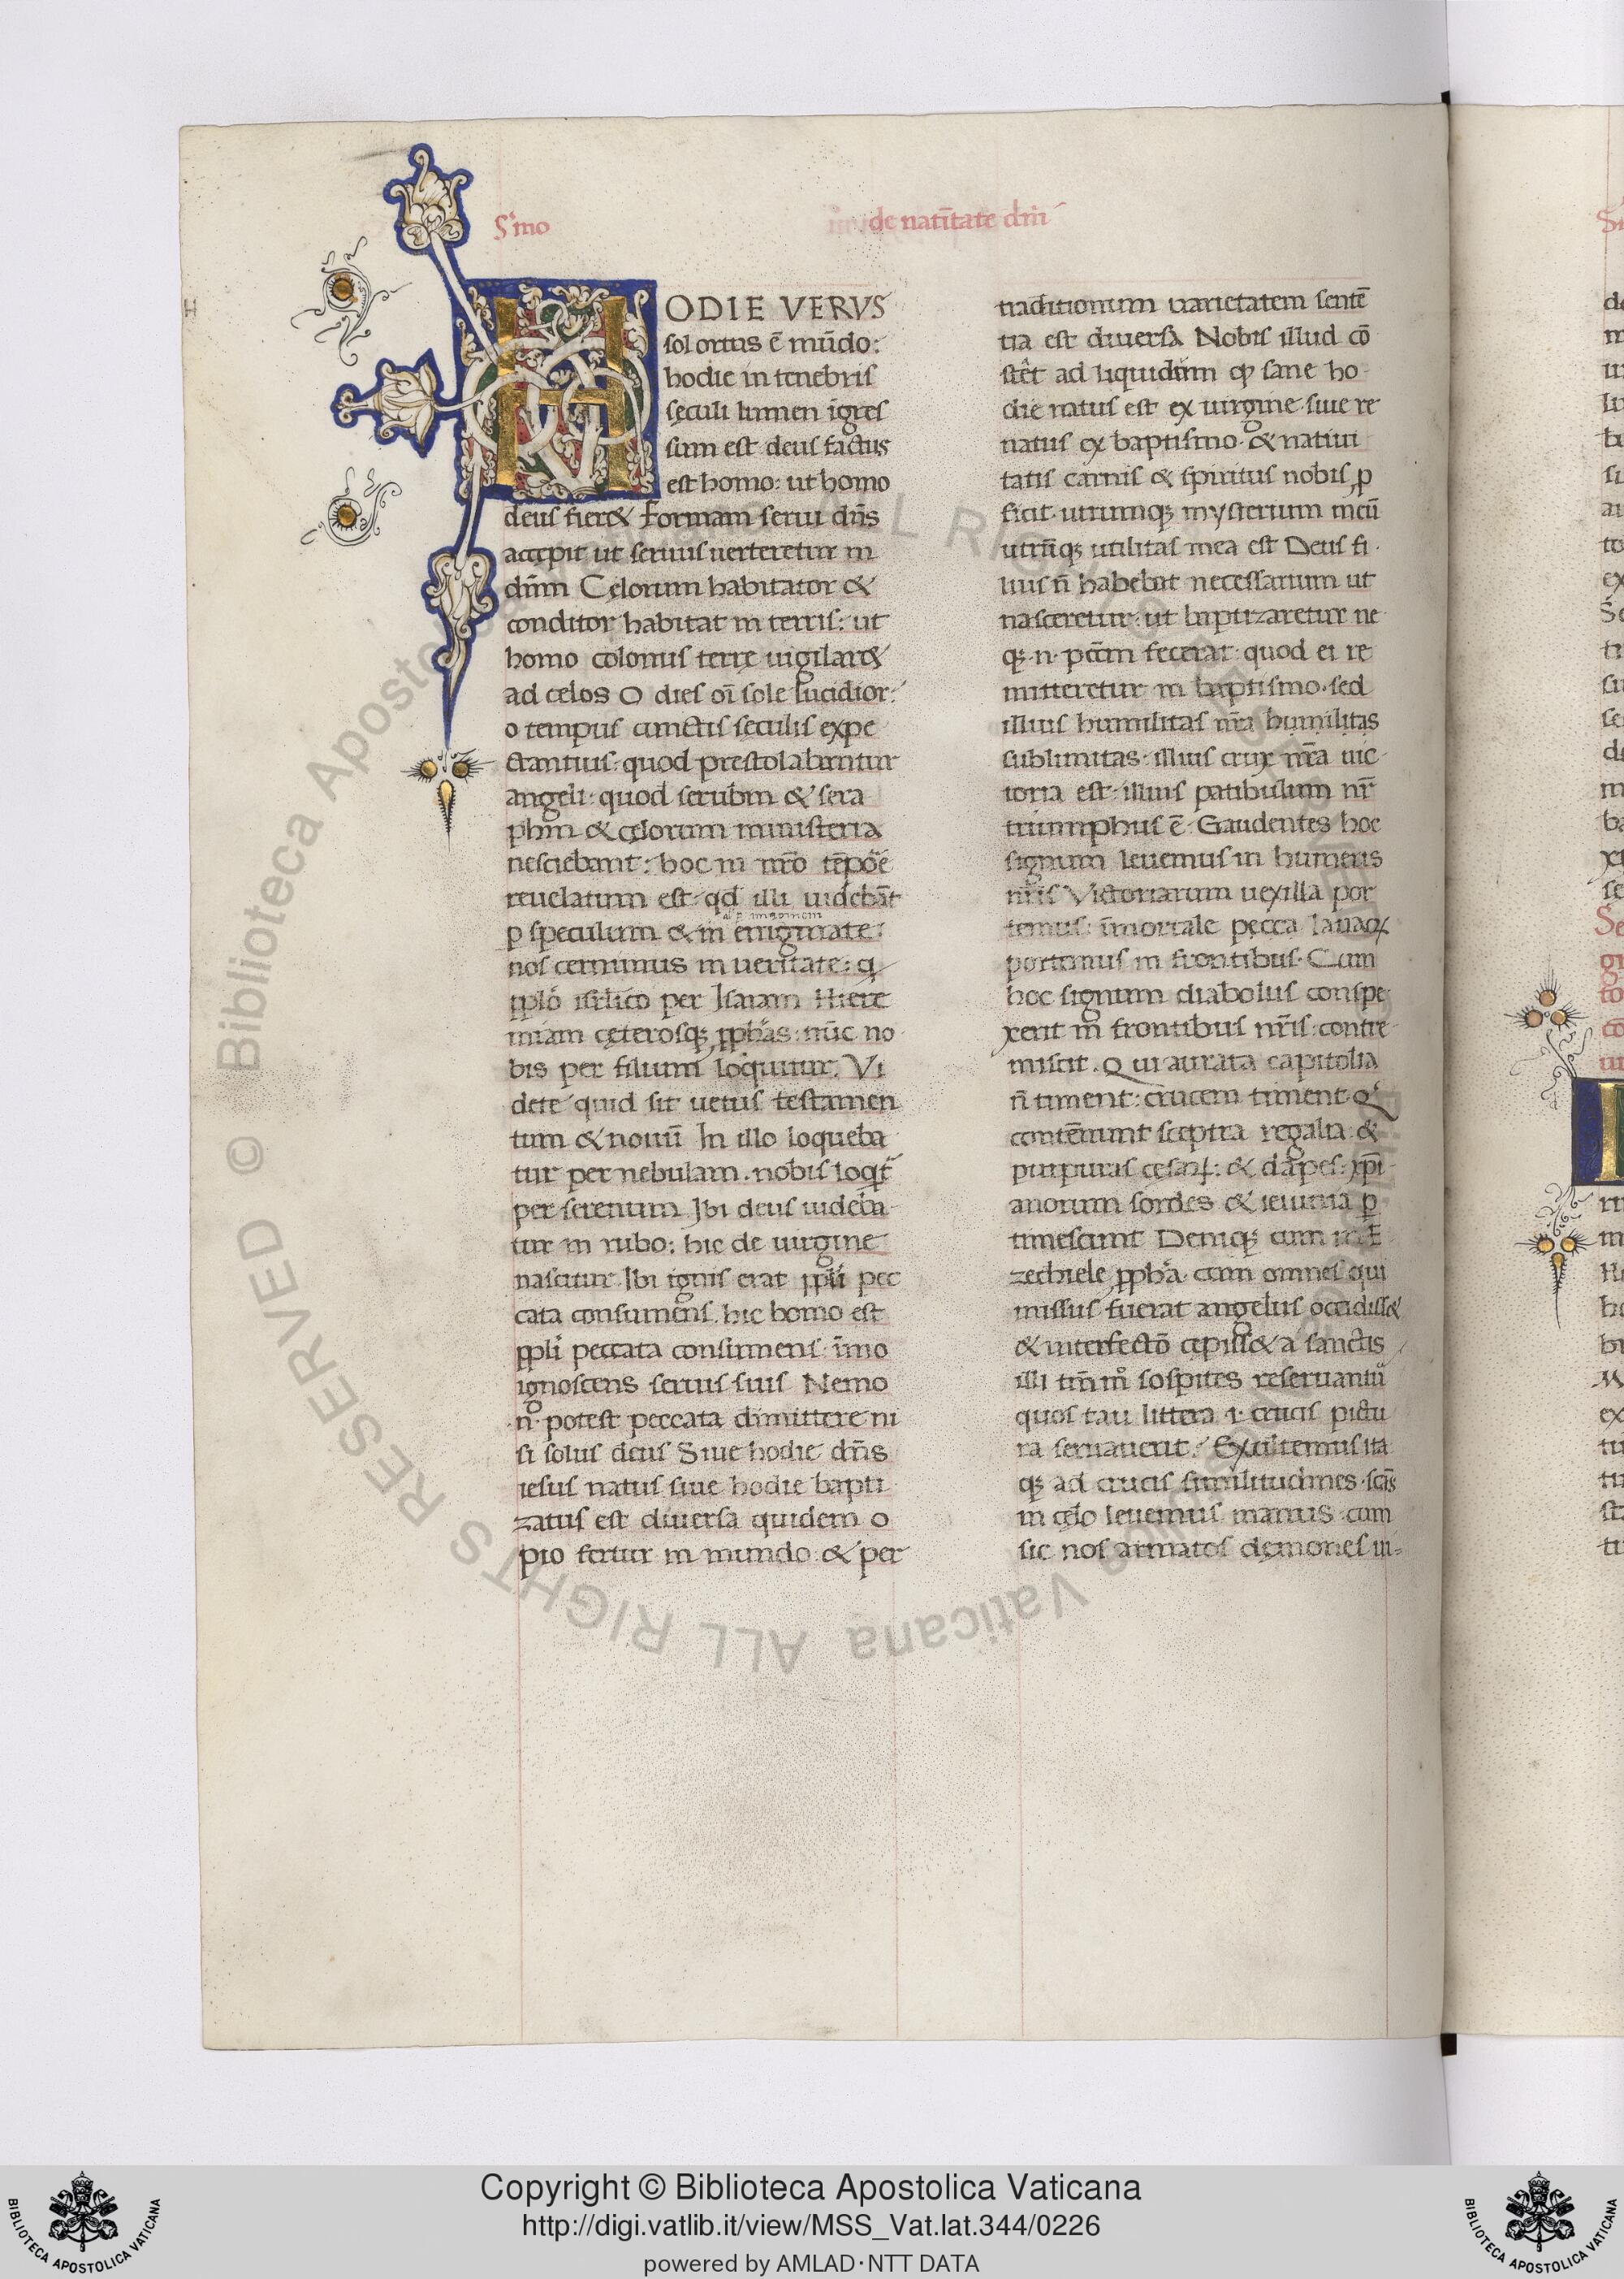 Sͬmo
de natītate dn̄i
H
HODIE VERVS
sol ortus ē mūdo:
hodie in tenebris
sęculi lumen īgres
sum est deus factus
est homo: ut homo
deus fier& formam serui dn̄s
accepit ut seruus uerteretur in
dn̄m Cęlorum habitator &
conditor habitat in terris: ut
homo colonus terrę uigilar&
ad celos O dies oī sole lucidior:
o tempus cunctis sęculis expe
ctantius: quod prestolabantur
angeli· quod serubin & sera
phin & cęlorum ministeria
nesciebant: hoc in nr̄o tēpōe
reuelatum est· qd illi uidebāt
p speculum & in enigmate:
nos cernimus in ueritate: q
ppło isr̄litico per Isaiam Hiere
miam cęterosq; pphas: nūc no
bis per filium loquitur. Vi
dete quid sit uetus testamen
tum & nouū In illo loqueba
tur per nebulam. nobis loqt̄
per serenum Ibi deus uideba
tur in rubo: hic de uirgine
nascitur Ibi ignis erat ppłi pec
cata consumens. hic homo est
ppłi peccata consumens: īmo
ignoscens seruis suis Nemo
n̄· potest peccata dimittere ni
si solus deus Siue hodie dn̄s
iesus natus siue hodie bapti
zatus est diuersa quidem o
pio fertur in mundo: & per
traditionum uarietatem sentē
tia est diuersa Nobis illud cō
stet ad liquidum qp sane ho
die natus est ex uirgine· siue re
natus ex baptismo· & natiui
tatis carnis & spiritus nobis p
ficit· utrumq; mysterium meū
utrūq; utilitas mea est Deus fi
lius n̄ habebat necessarium ut
nasceretur: ut baptizaretur ne
q;· n· pcc̄m fecerat: quod ei re
mitteretur in baptismo· sed
illius humilitas nr̄a humilitas
sublimitas· illius crux nr̄a uic
toria est· illius patibulum nr̄
triumphus ē Gaudentes hoc
signum leuemus in humeris
nr̄is Victoriarum uexilla por
temus: īmortale
portemus in frontibus· Cum
hoc signum diabolus conspe
xerit in frontibus nr̄is: contre
miscit. Qui aurata capitolia
n̄ timent: crucem timent Qͥ
contēnunt sceptra regalia &
purpuras cęsarꝝ: & dapes: xp̄i
anorum sordes & ieiunia p
timescunt Deniq; cum in E
zechiele ppha· cum omnes qui
missus fuerat angelus occidiss&
& interfectō cepiss& a sanctis
illi tm̄mͦ sospites reseruantur
quos tau littera ·i· crucis pictu
ra seruauerit. Exultemus ita
q; ad crucis similitudines scās
in cęlo leuemus manus cum
sic nos armatos dęmones ui=
Copyright © Biblioteca Apostolica Vaticana
http://digi.vatlib.it/view/MSS_Vat.lat.344/0226
powered by AMLAD·NTT DATA
BIBLIOTECA APOSTOLICA VATICANA
BIBLIOTECA APOSTOLICA VATICANA